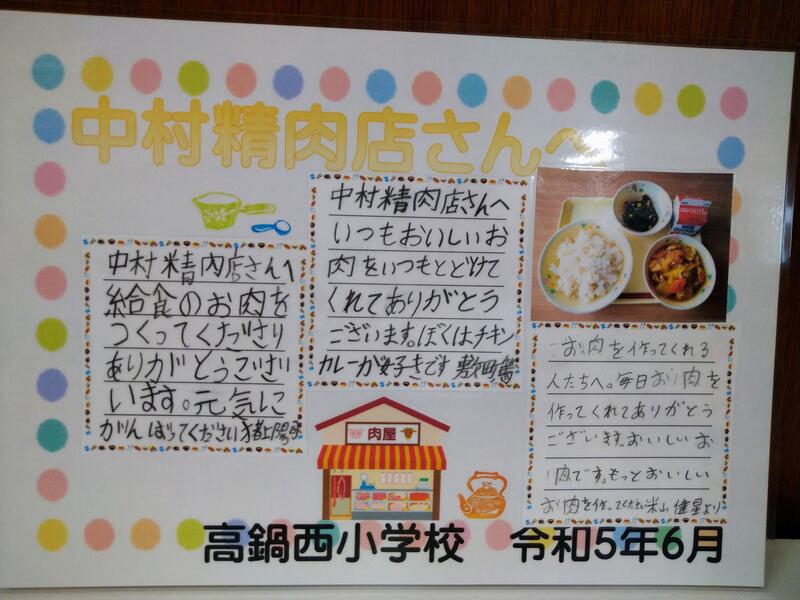 中村精肉店さんへ
中村精肉店さんへ
給食のお肉を
つくってくださり
ありがとうござい
います。元気に
がんばってください
中村精肉店さんへ
いつもおいしいお
肉をいつもとどけて
くれてありがとう
ございます。ぼくはチキン
カレーが好きです
お肉を作ってくれる
人たちへ。毎日お肉を
作ってくれてありがとう
ございます。おいしいお
肉です。もっとおいしい
お肉を作ってください米山健星より
肉屋
高鍋西小学校 令和5年6月